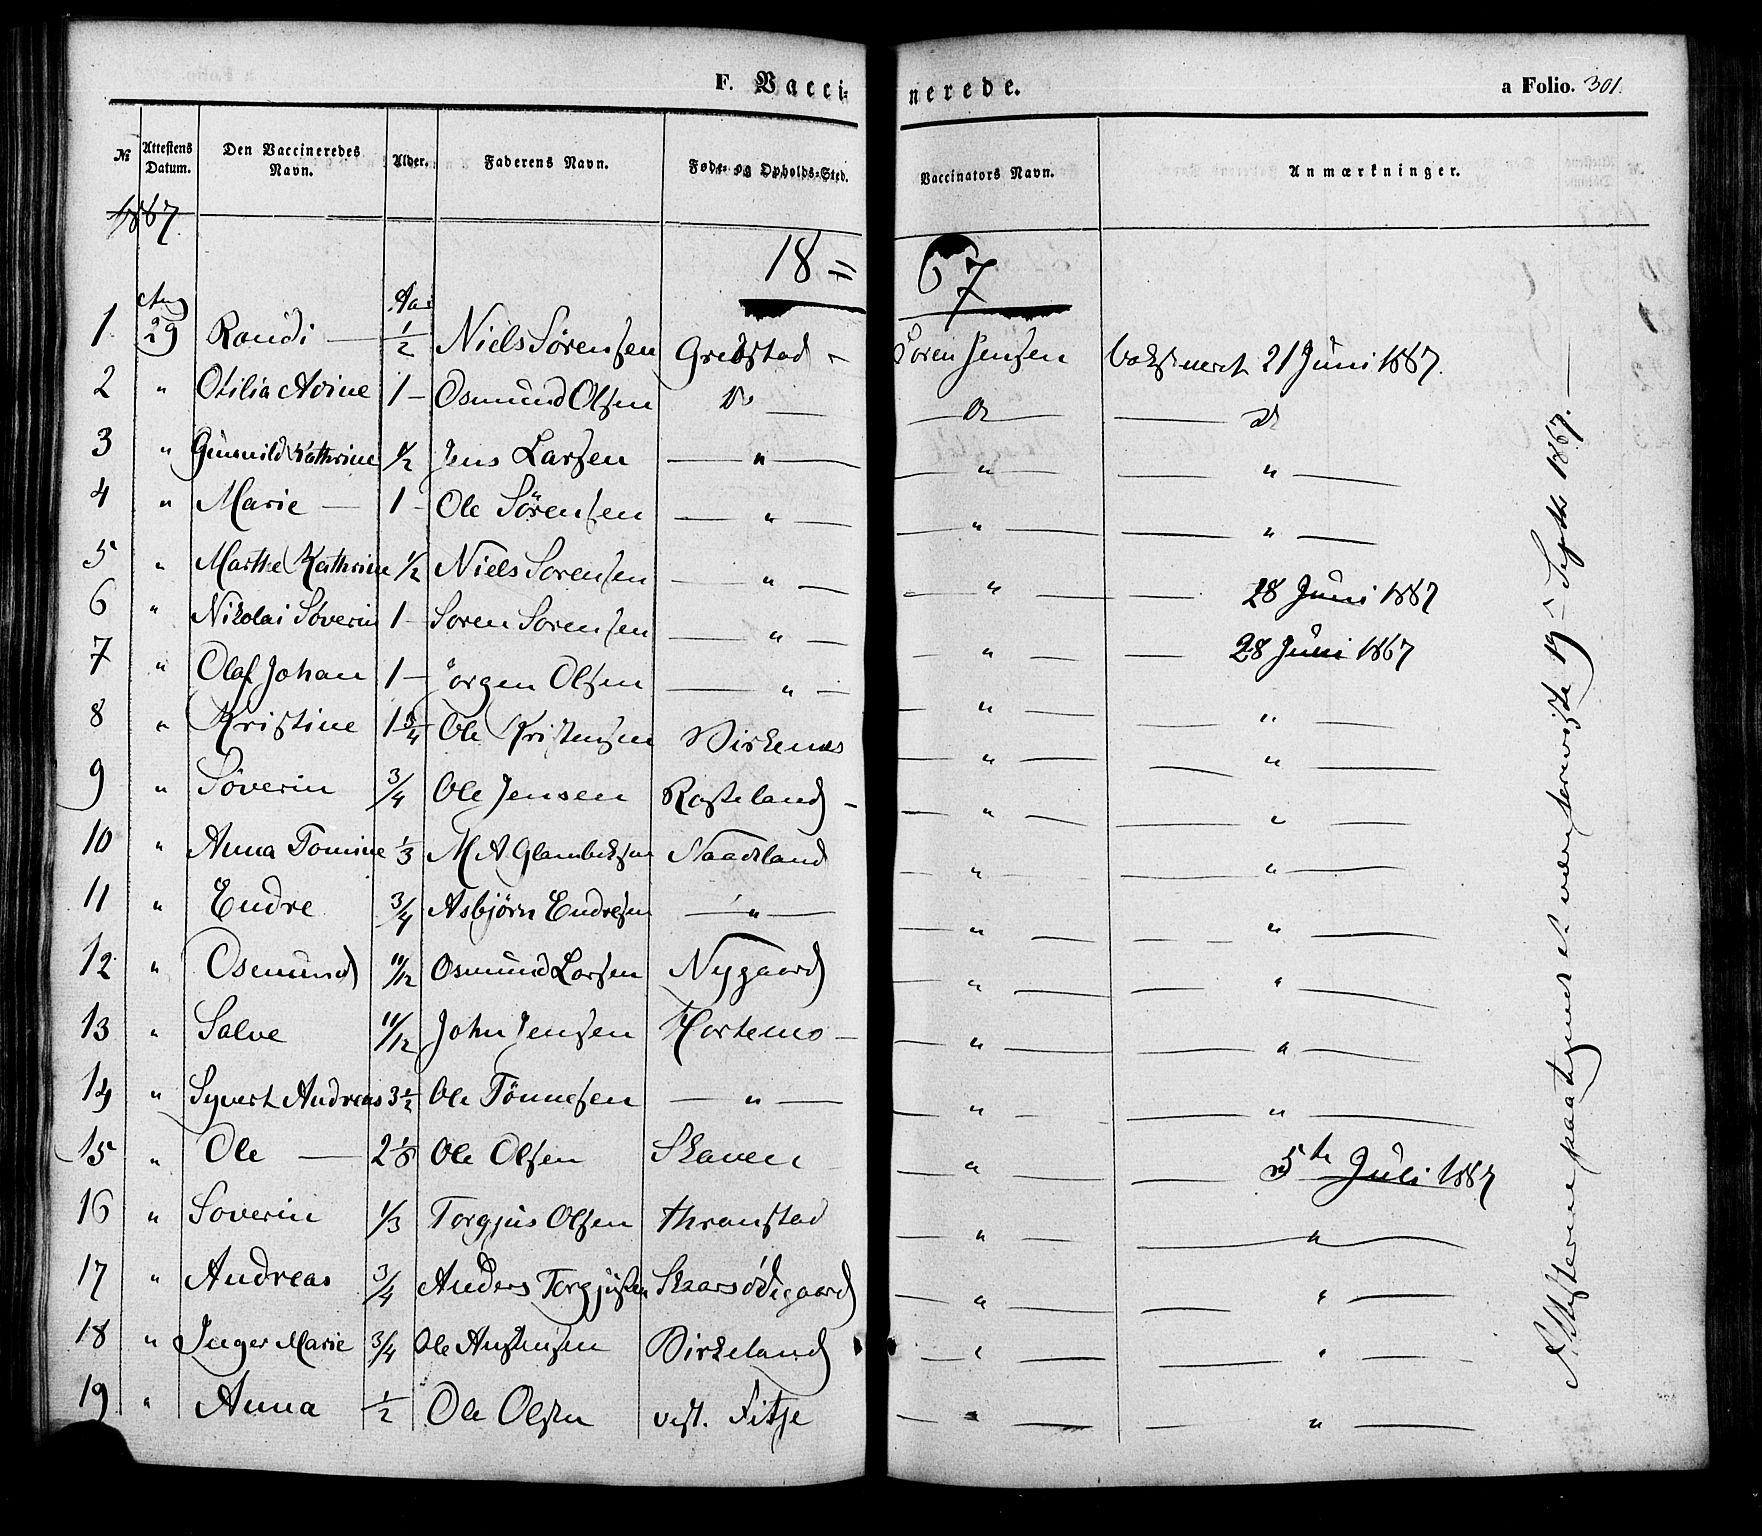 F. Vaccinerede. a Folio. 301.
№ Attestens Datum. Den Vaccineredes Navn. Alder. Faderens Navn. Føde- og Opholds-Sted. Vaccinators Navn. Anmærkninger.
1867.
18 = 67
Aug Aar
1. 29 Randi — 1/2 Niels Sørensen Grebstad - Søren Jensen Vaksineret 21 Juni 1867.
2 " Otilia Avine 1 - Osmund Olsen Do — Do — Do
3 " Gunnild Kathrine 1/2 Jens Larsen — " — " — " —
4 " Marie — 1 - Ole Sørensen — " — " — " —
5 " Marthe Kathrine 1/2 Niels Sorensen — " — " — 28 Juni 1867
6 " Nikolai Søverin 1 - Soren Sorensen — " — " — 28 Juni 1867
7 " Olaf Johan 1 - Jørgen Olsen — " — " — " —
8 " Kristine 1 3/4 Ole Kristensen Birkenes " — " —
9 " Søverin 3/4 Ole Jensen Rosseland - " — " —
10 " Anna Tomine 1/3 M A Glambeksen Naadeland " — " —
11 " Endre 3/4 Asbjørn Endresen — " — " — " —
12 " Osmund 11/12 Osmund Larsen Nygaard " — " —
13 " Salve 11/12 John Jensen Hortemo - " — " —
14 " Syvert Andreas 3 1/2 Ole Tønnesen — " — " — " —
15 " Ole — 2 Ole Olsen Skaven " — 5te Juli 1867
16 " Soverin 1/3 Torgjus Olsen Thranstad " — " —
17 " Andreas 3/4 Anders Torgjusen " — " —
18 " Inger Marie 3/4 Ole Birkeland " — " —
19 " Anna 1/2 Ole Olsen vest. Fitje " — " —
Attesterne paategnet at være 19 Septbr 1867. —